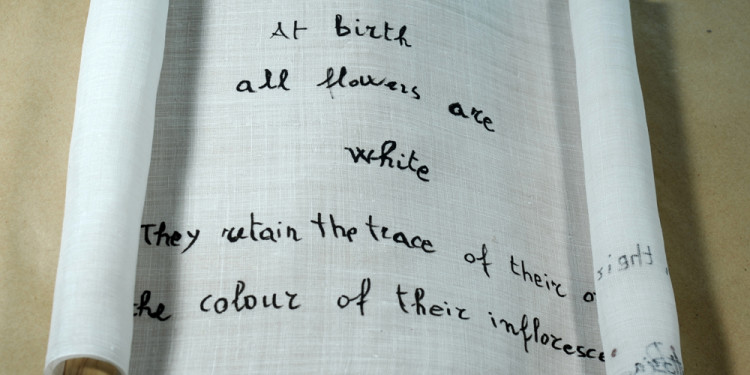 At Birth
all flowers are
white
They retain the trace of their o
the colour of their infloresce